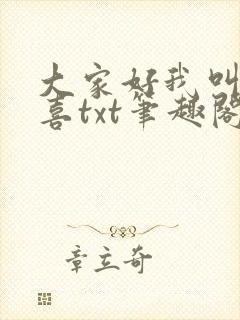 大家好我叫
喜txt笔趣阁
章立奇